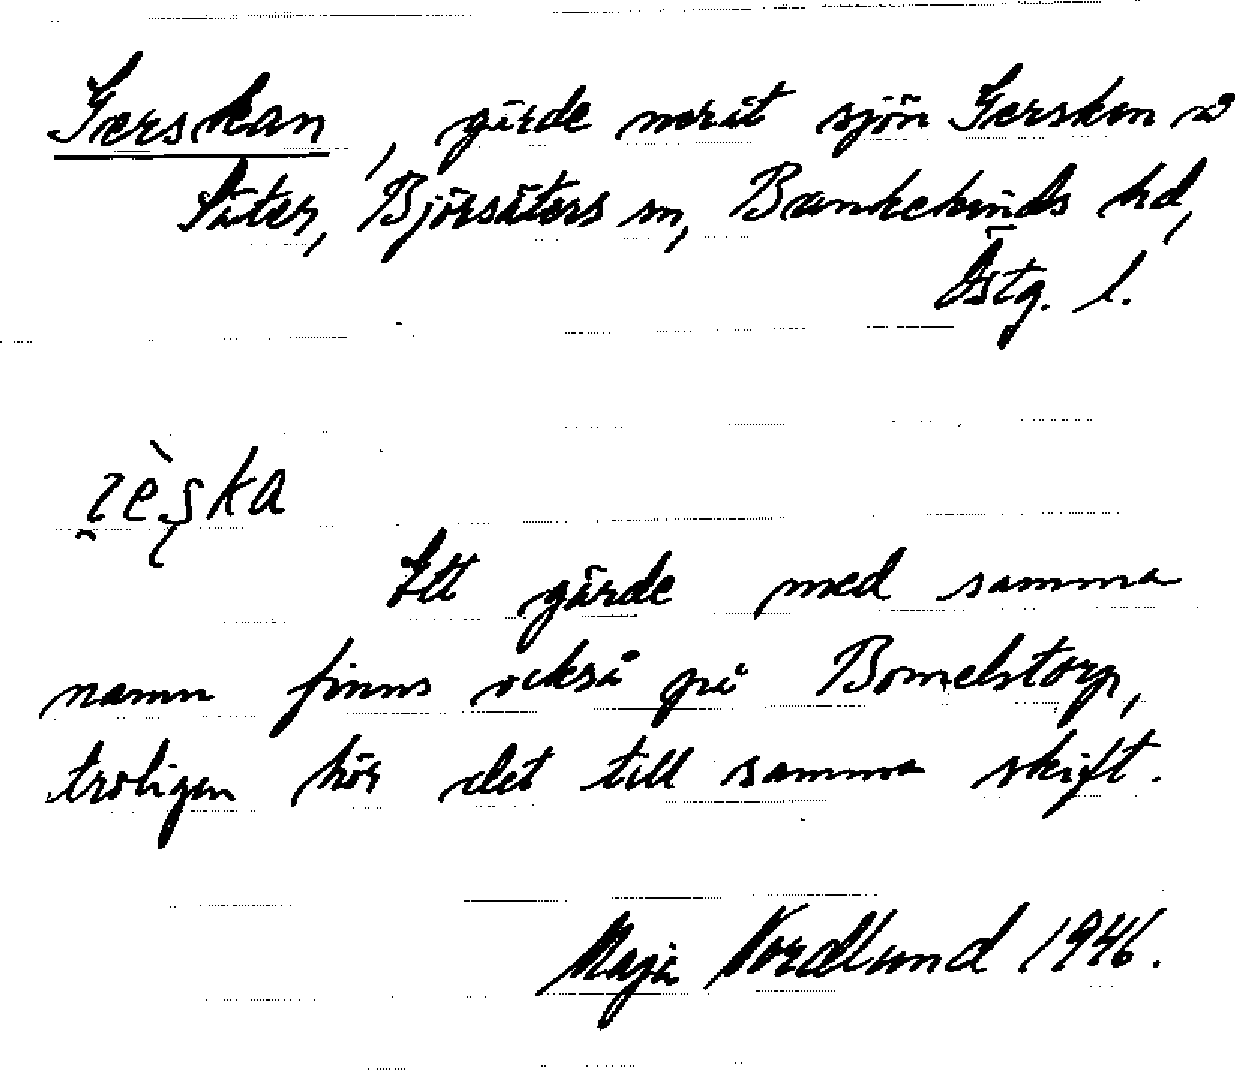 Gerskan, gärde neråt sjön Gersken
Säter, Björsäters sn, Bankekinds hd,
Östg. l.
Ett gärde med samma
namn finns också på Bomelstorp,
troligen hör det till samma skift.
Maja Nordlund 1946.